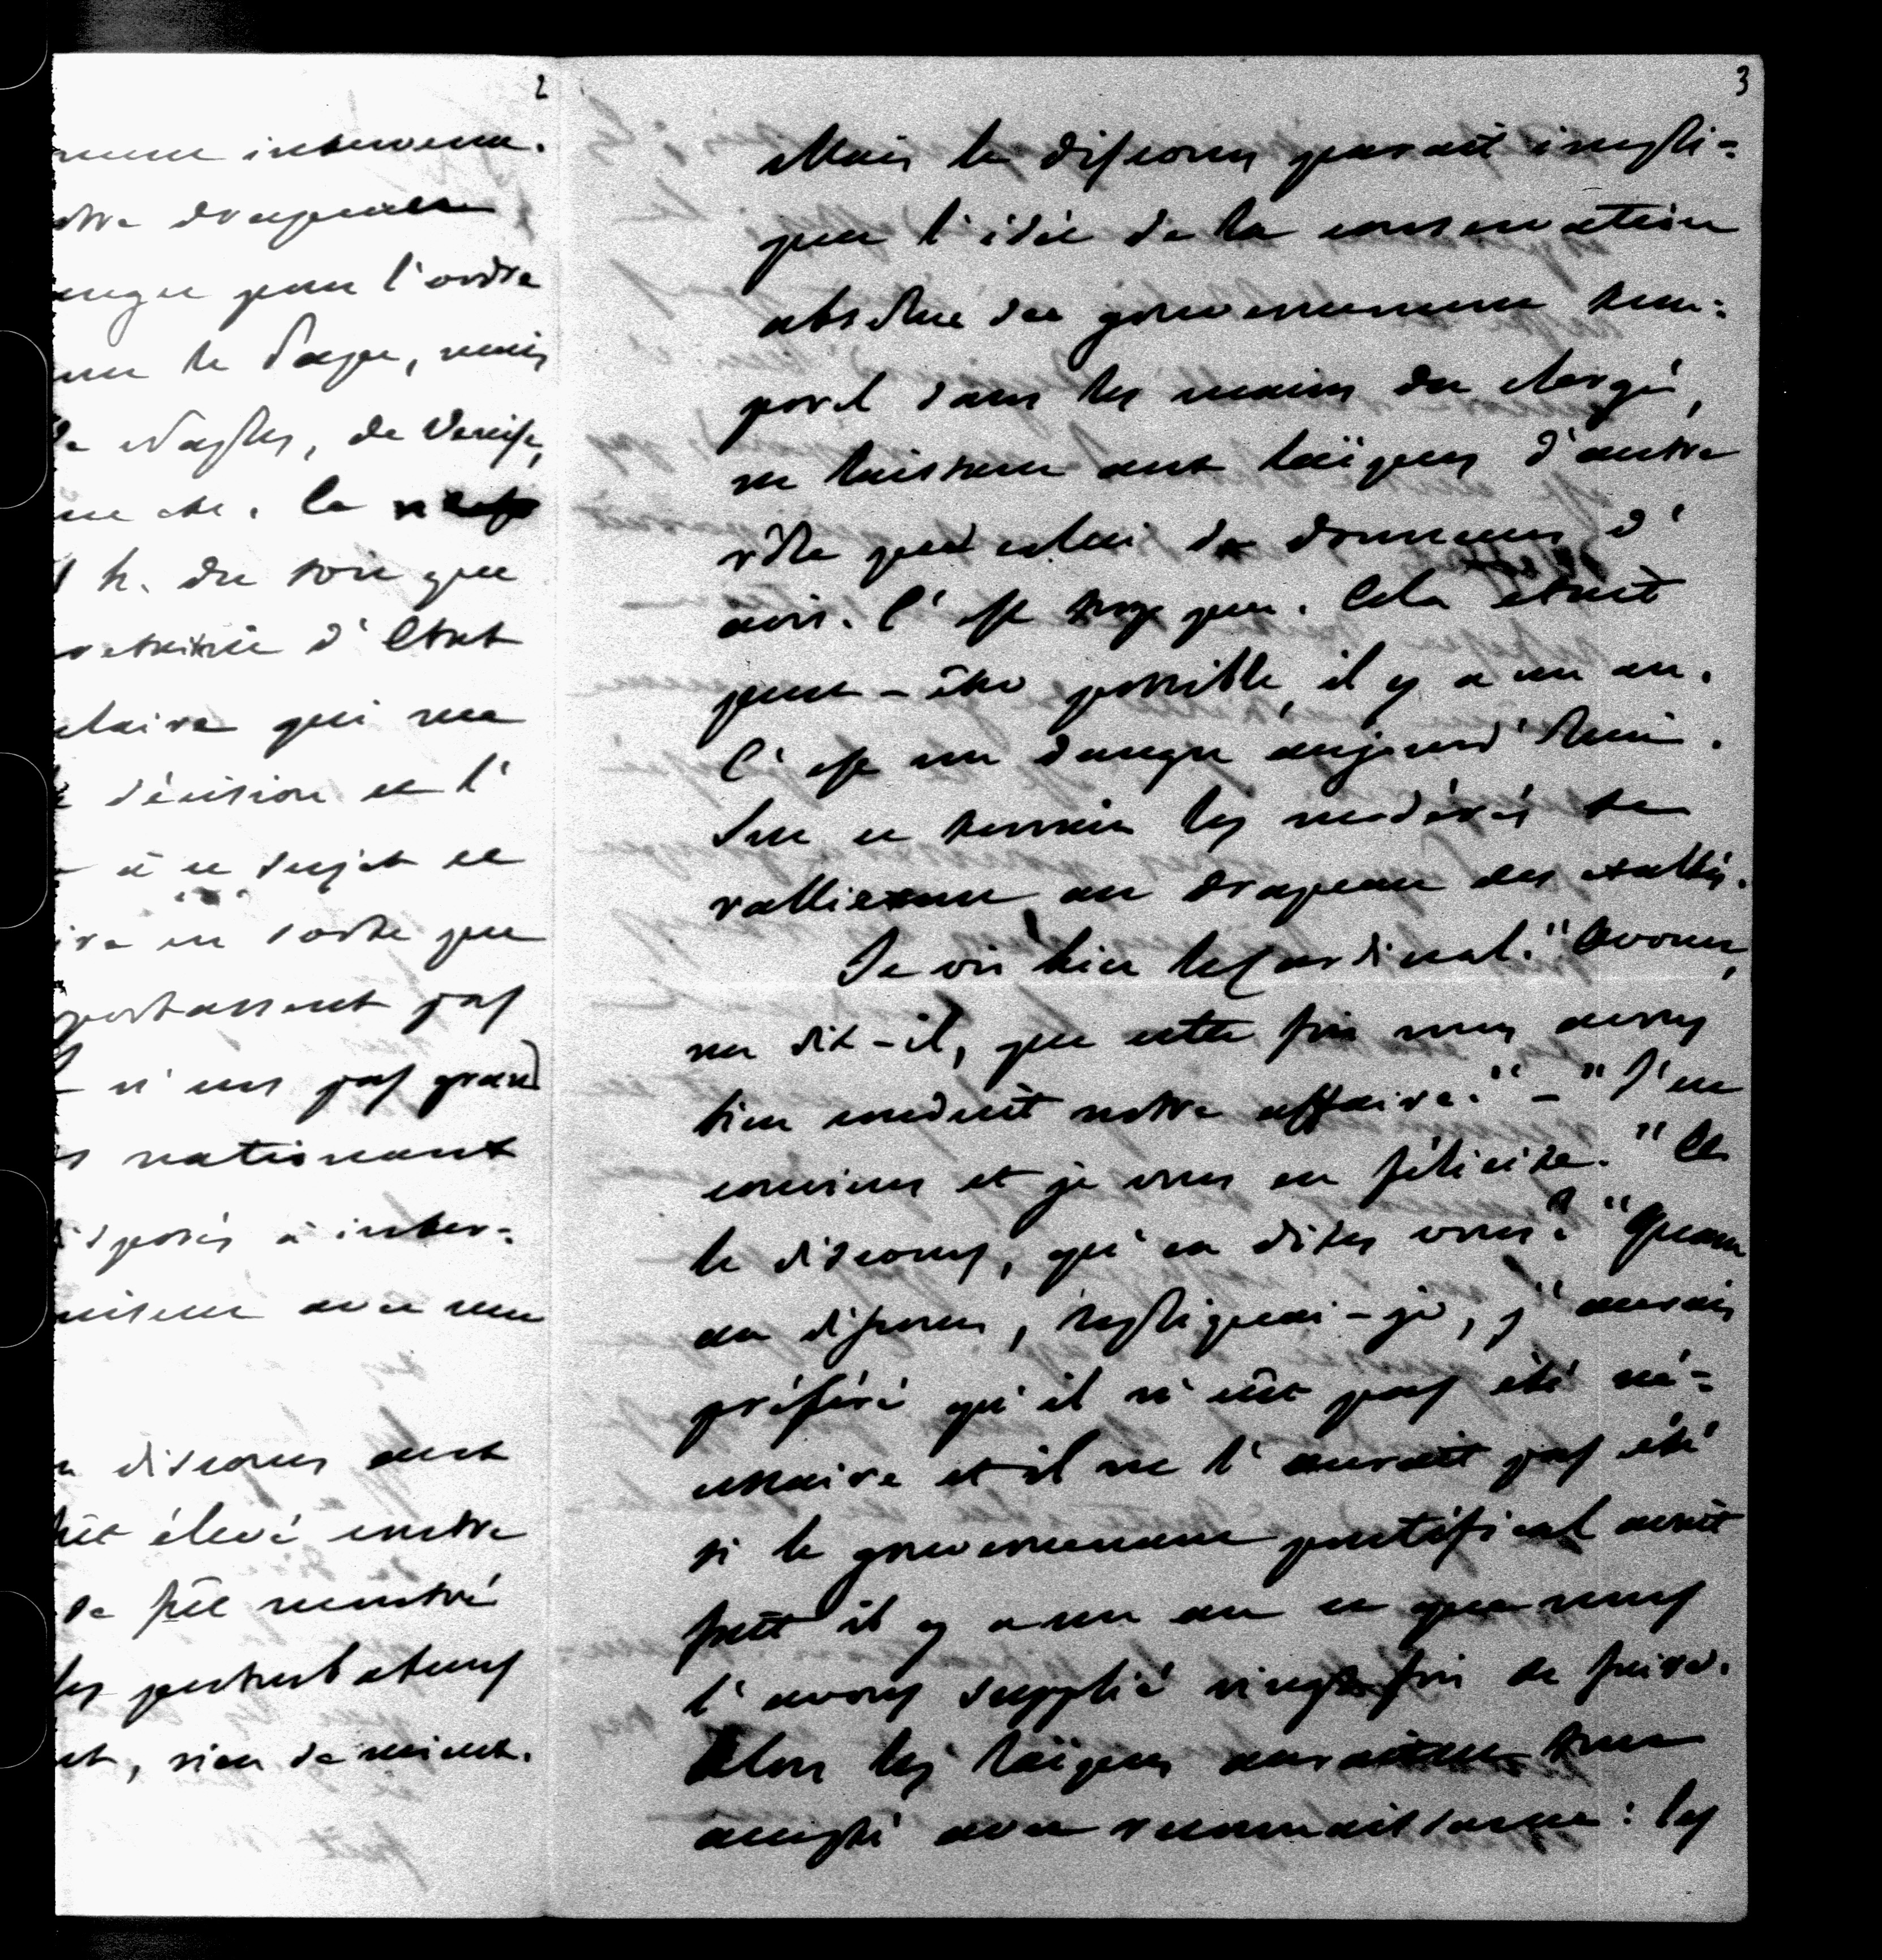 2
intervenu.
drapeau
pour l'ordre
le Pape, mais
de Naples, de Venise,
etc. Ce
h. du soir que
d'Etat
claire qui me
décision et l'
à ce sujet et
en sorte que
pas
n'est pas grand
nationaux
disposés à inter-
avec une
discours aux
élevé contre
se fût montré
les perturbateurs
rien de mieux.
3
Mais le discours parait impli-
quer l'idée de la conservation
absolue du gouvernement tem-
porel dans les mains du clergé,
ne laissant aux laïques d'autre
rôle que celui de donneurs d'
avis. C'est trop peu. Cela était
peut-être possible, il y a un an.
C'est un danger aujourd'hui.
Sur ce terrain les modérés se
rallieront au drapeau des exaltés.
Je vis hier le Cardinal. "Avouez,
me dit-il, que cette fois nous avons
bien conduit notre affaire." - "J'en
conviens et je vous en félicite." "Et
le discours, qu'en dites vous? "Quant
au discours, répliquai-je, j'aurais
préféré qu'il n'eût pas été né-
cessaire et il ne l'aurait pas été
si le gouvernement pontifical avait
fait il y a un an ce que nous
l'avons supplié vingt fois de faire.
Alors les laïques auraient tout
accepté avec reconnaissance: les